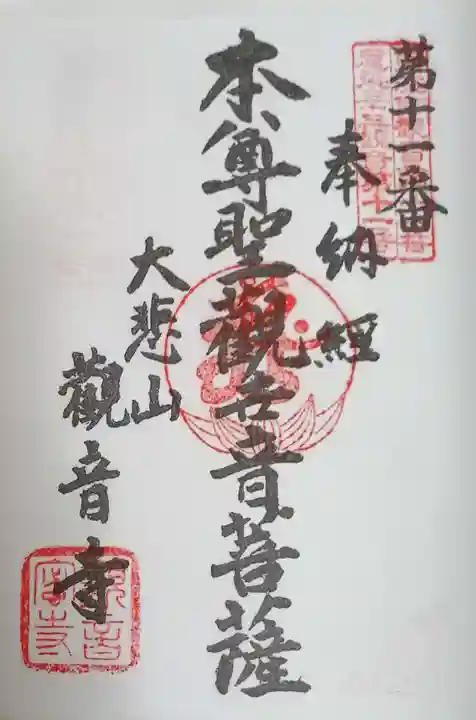 第十一番
奉納経
本尊聖觀世音菩薩
大悲山
觀音寺